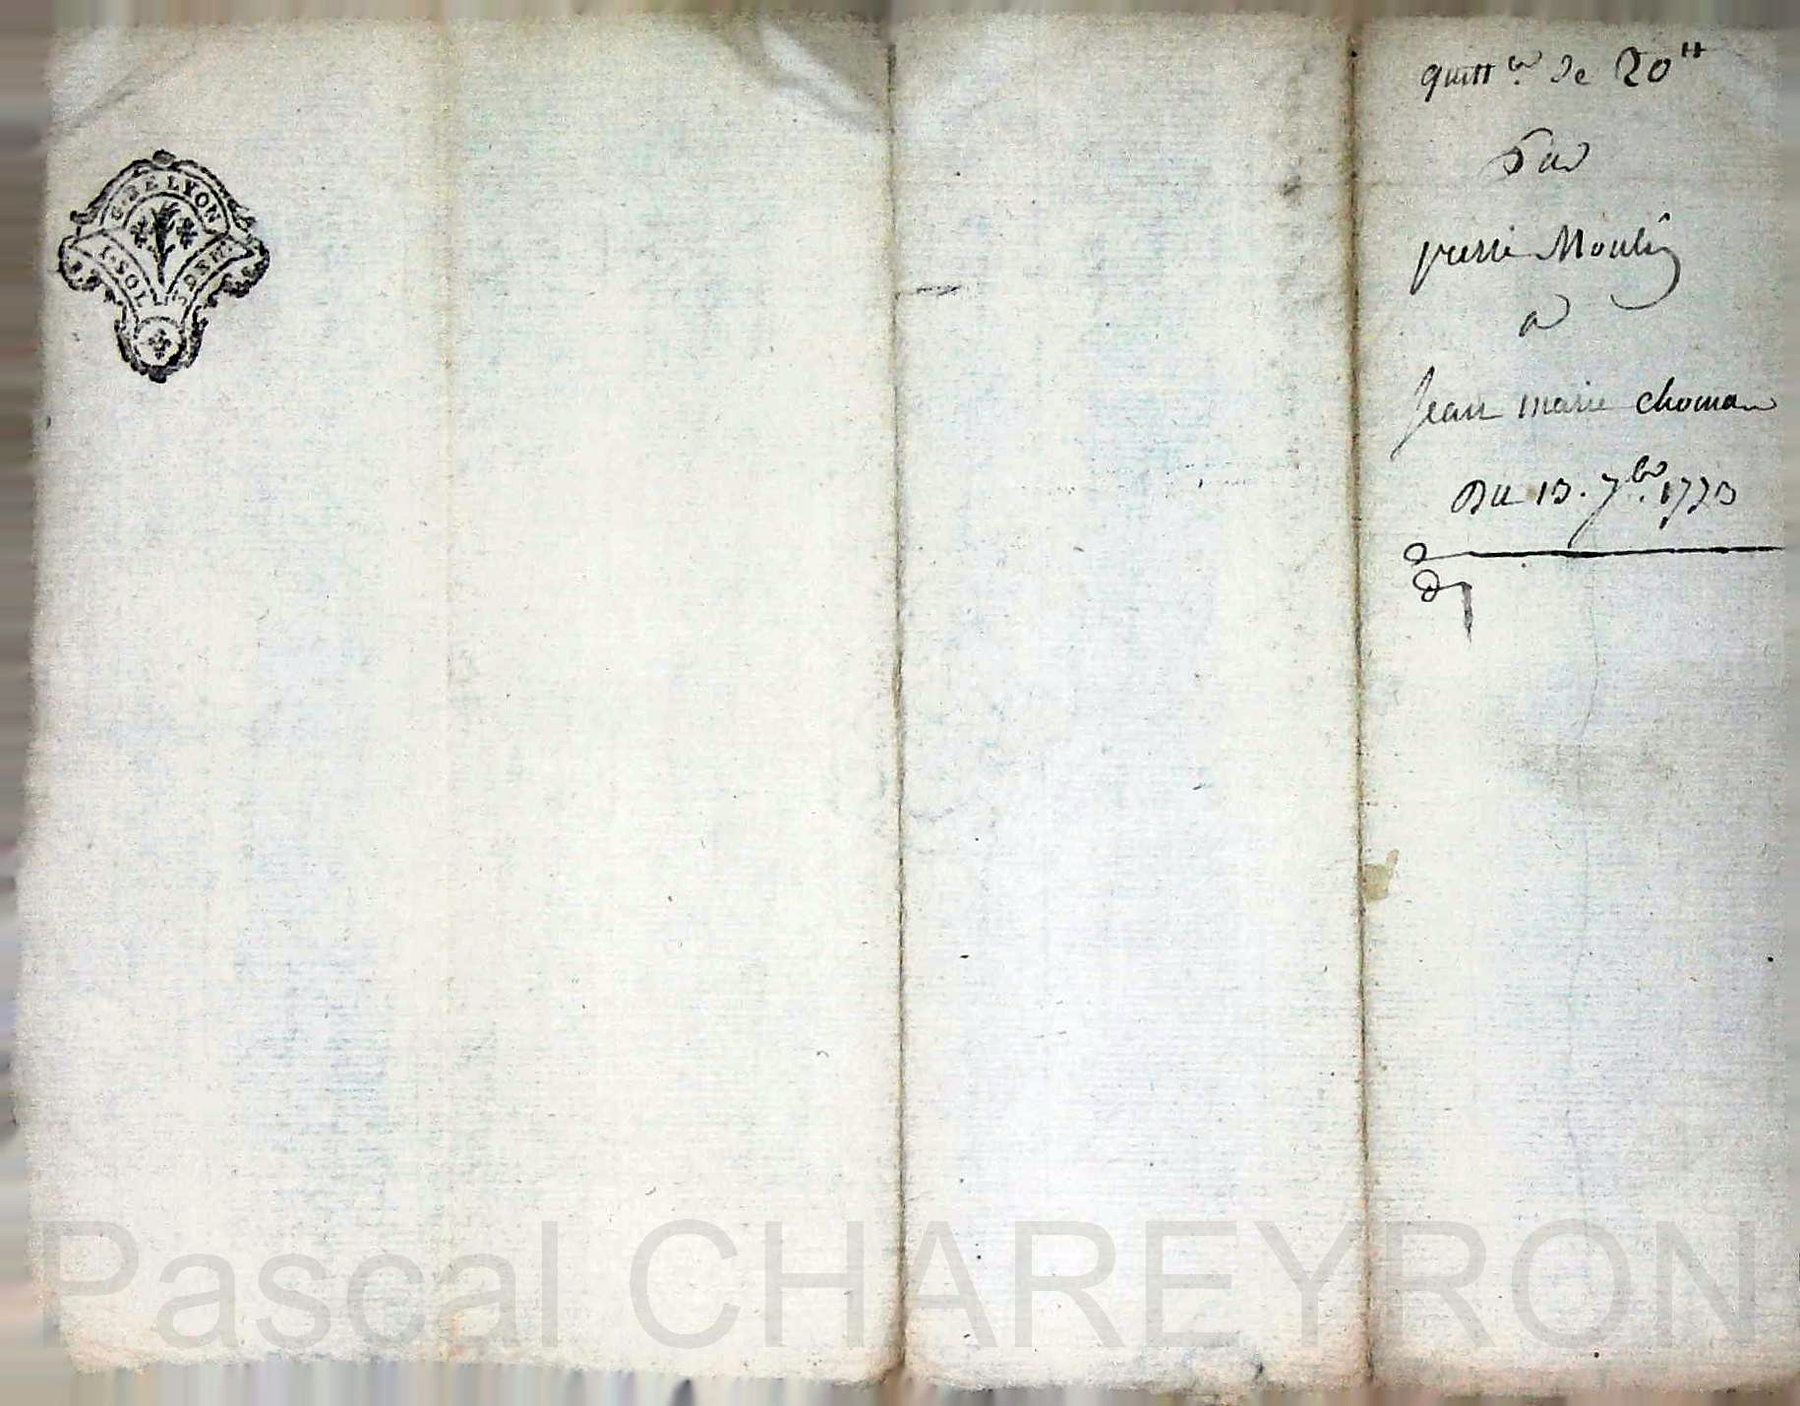 G. DE LYON
1. SOL
DEN
quitt.ce de 20 tt
Par
pierre Moulin
a
Jean marie choman
Du 13. 7bre. 1773
Pascal CHAREYRON